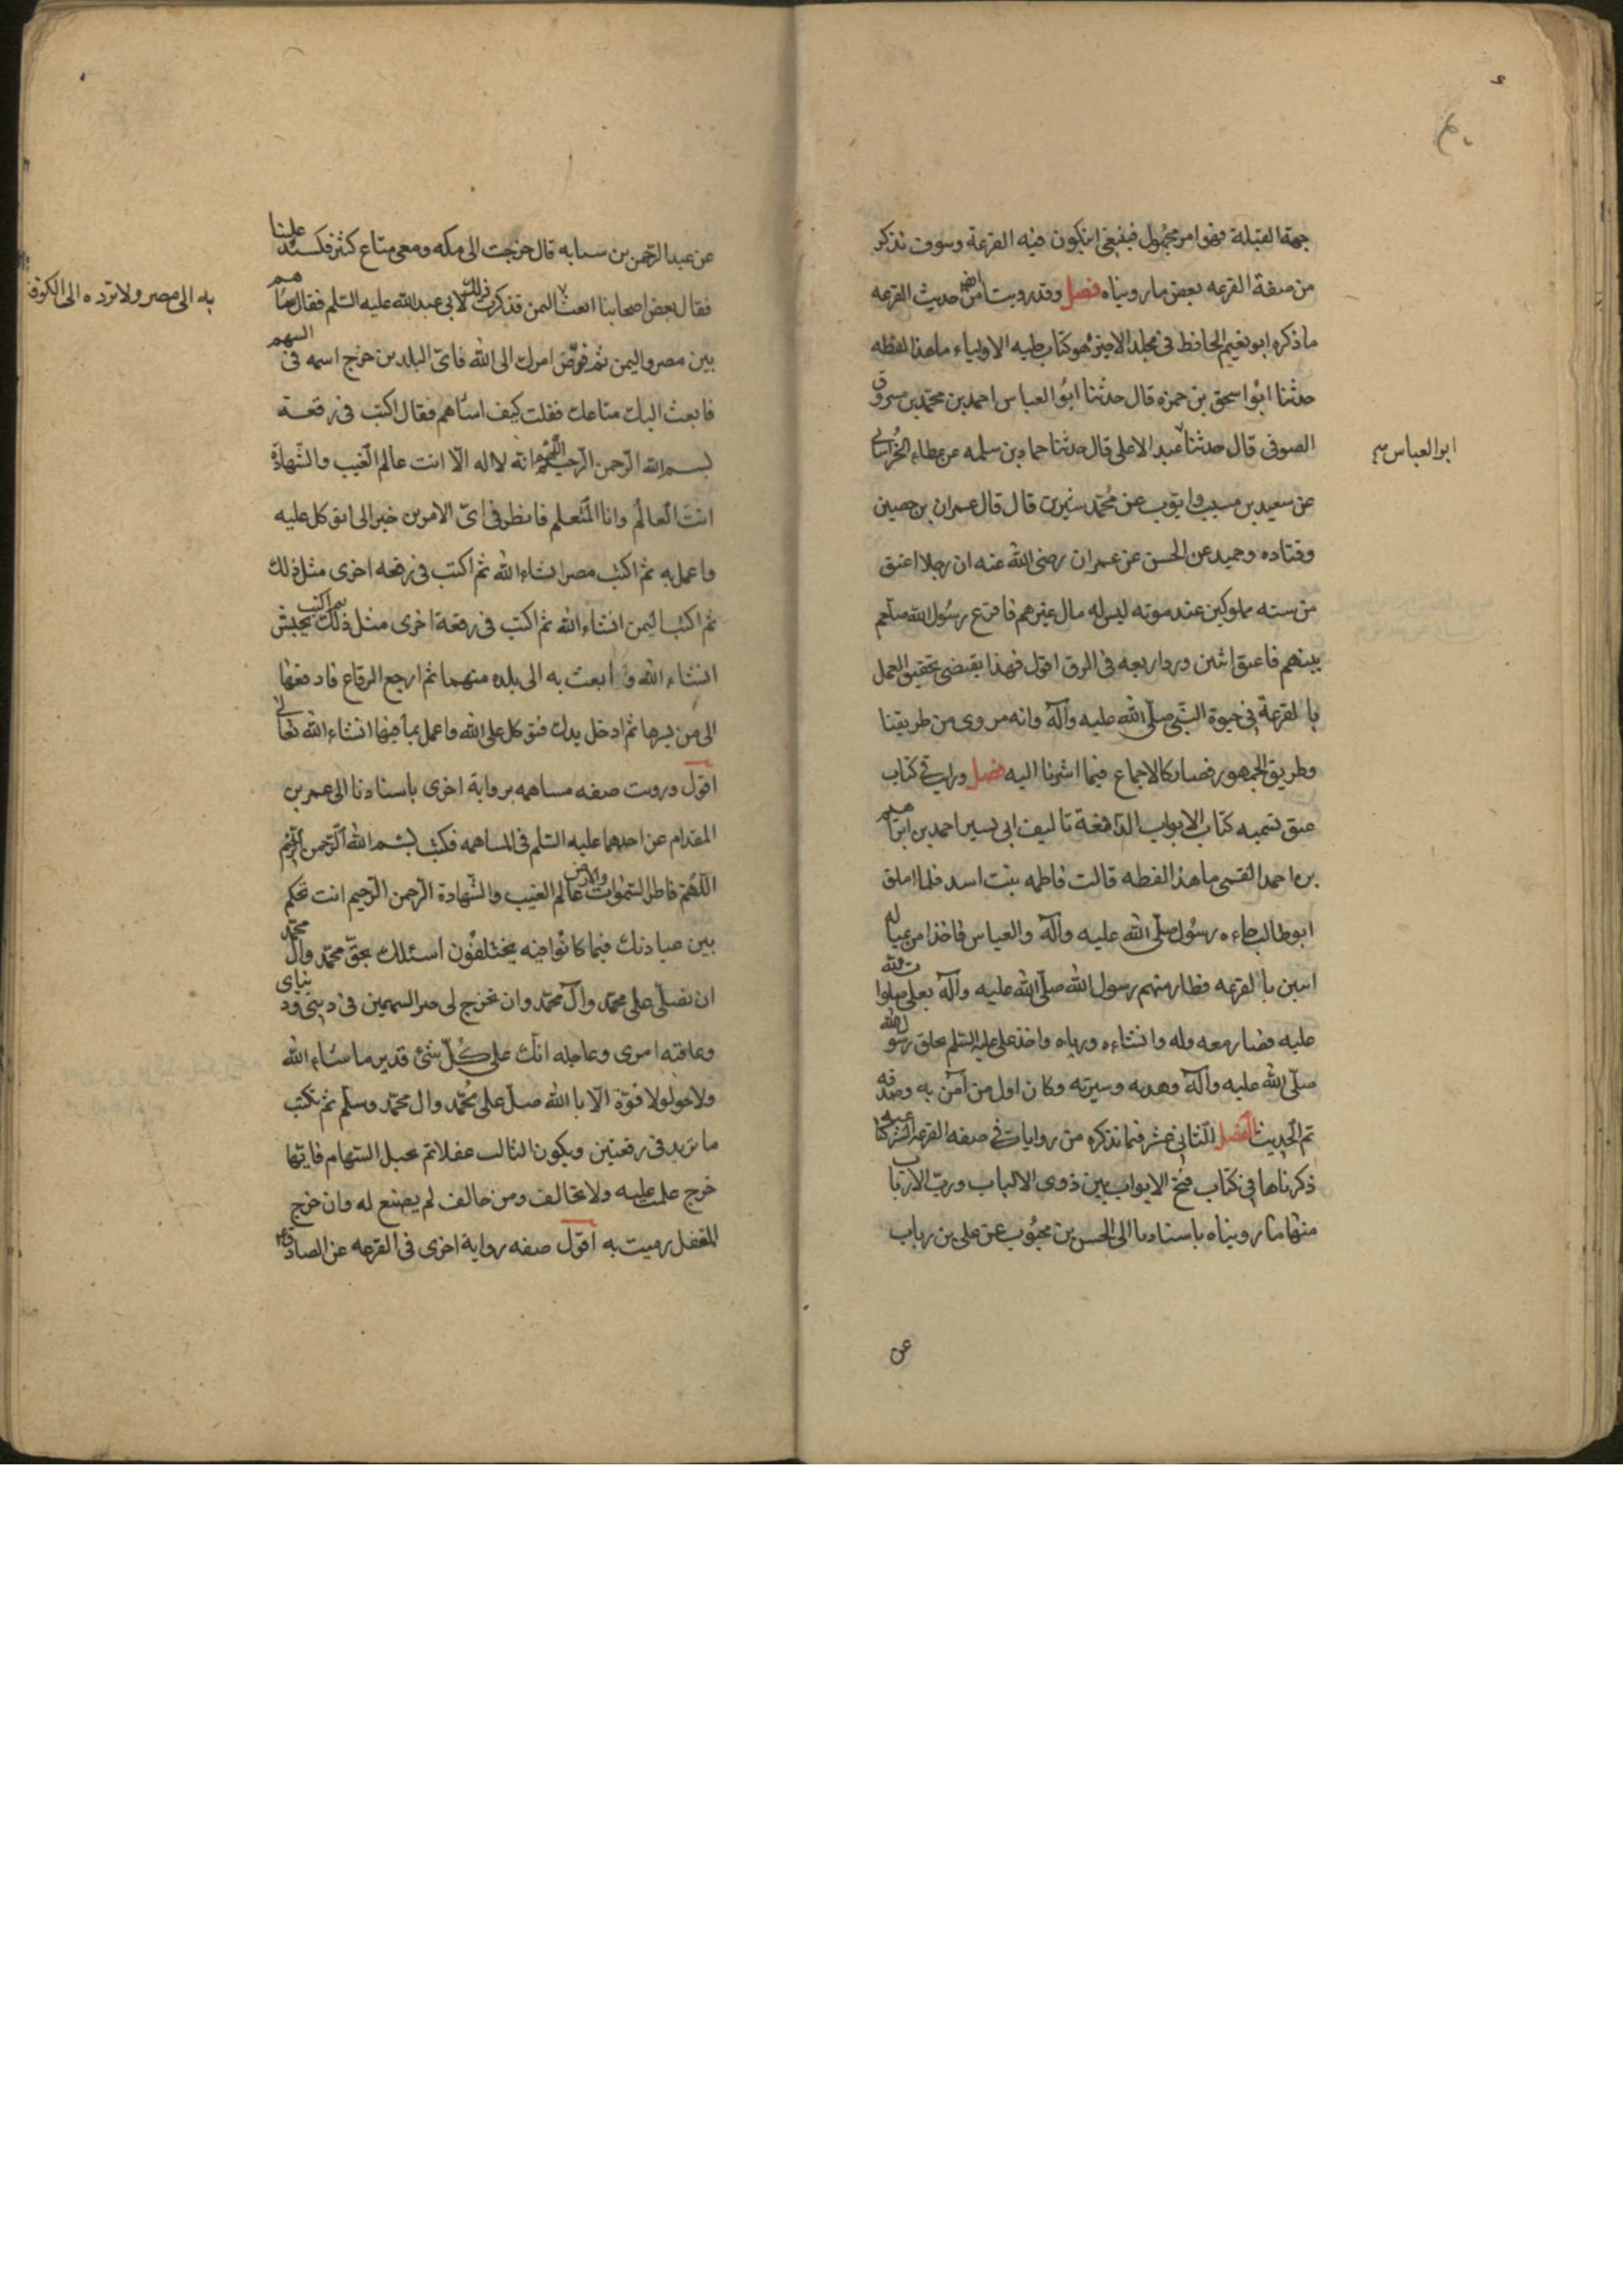 جهة القبلة فهو امر مجهول فينبغي ان يكون فيه القرعة وسوف نذكر
من صفة القرعه بعض ما رويناه فصل وقد رويت من حديث القرعه
ما ذكره ابو نعيم الحافظ في مجلد الاخير وهو كتاب حليه الاولياء ما هذا لفظه
حدثنا ابو اسحق بن حمزه قال حدثنا ابو العباس احمد بن محمد بن مسروق
الصوفي قال حدثنا عبد الاعلى قال حدثنا حماد بن سلمه عن عطاء الخراساني
ابو العباس
عن سعيد بن مسيب وايوب عن محمد سيرين قال قال عمران بن حصين
وقتاده وحميد عن الحسن عن عمران رضى الله عنه ان رجلا اعتق
من سته مملوكين عند موته ليس له مال غيرهم فاقرع رسول الله صلعم
بينهم فاعتق اثنين ورد اربعه في الرق اقول فهذا يقتضى تحقيق العمل
بالقرعة في حيوة النبي صلى الله عليه وآله وانه مروى من طريقنا
وطريق الجمهور فصار كالاجماع فيما اشرنا اليه فصل ورايت في كتاب
عتق تسميه كتاب الابواب الدافعة تاليف ابى بسير احمد بن ابراهيم
بن احمد القسى ما هذا لفظه قالت فاطمه بنت اسد فلما املق
ابو طالب جاءه رسول صلى الله عليه وآله والعباس فاخذا من عياله
اسين بالقرعه فطار منهم رسول الله صلى الله عليه وآله بعلى صلوات الله
عليه فصار معه وله وانشاءه ورباه واخذ على عليه السلم بخلق رسول الله
صلى الله عليه وآله وهديه وسيرته وكان اول من آمن به وصدقه
تم الحديث الفصل الثانى عشر فيما نذكره من روايات في صفه القرعه الشرعيه كنا
ذكرناها في كتاب فتح الابواب بين ذوى الالباب ورب الارباب
منها ما رويناه باسنادنا الى الحسن بن محبوب عن على بن رباب
عن
عن عبد الرحمن بن سيابه قال خرجت الى مكه ومعى متاع كثير فكسد علينا
فقال بعض اصحابنا ابعث اليمن فذكرت ذلك لابى عبد الله عليه السلم فقال ساهم
به الى مصر ولا ترده الى الكوفه
بين مصر واليمن ثم فوض امرك الى الله فاى البلدين خرج اسمه في السهم
فابعث اليك متاعك فقلت كيف اساهم فقال اكتب في رقعة
بسم الله الرحمن الرحيم اللهم انه لا اله الا انت عالم الغيب والشهادة
انت العالم وانا المتعلم فانظر فى اى الامرين خير الى اتوكل عليه
واعمل به ثم اكتب مصر انشاء الله ثم اكتب في رقعه اخرى مثل ذلك
ثم اكتب اليمن انشاء الله ثم اكتب في رقعة اخرى مثل ذلك ثم اكتب يحبس
انشاء الله و ابعث به الى بلده منهما ثم ارجع الرقاع فادفعها
الى من يسرها ثم ادخل يدك فتوكل على الله واعمل بما فيها انشاء الله تعالى
اقول ورويت صفه مساهمه برواية اخرى باسنادنا الى عمر بن
المقدام عن احدهما عليه السلم في المساهمه فكتب بسم الله الرحمن الرحيم
اللهم فاطر السموات والارض عالم الغيب والشهادة الرحمن الرحيم انت تحكم
بين عبادك فيما كانوا فيه يختلفون اسئلك بحق محمد وال محمد
ان تصلى على محمد وال محمد وان تخرج لى خير السهمين في دينى ودنياى
وعاقبه امرى وعاجله انك على كل شئ قدير ما شاء الله
ولا حول ولا قوة الا بالله صل على محمد وال محمد وسلم ثم تكتب
ما تريد في رقعتين ويكون الثالث غفلا ثم تجيل السهام فايها
خرج علمت عليه ولا تخالف ومن خالف لم يصنع له وان خرج
الغفل رميت به اقول صفه رواية اخرى في القرعه عن الصادق